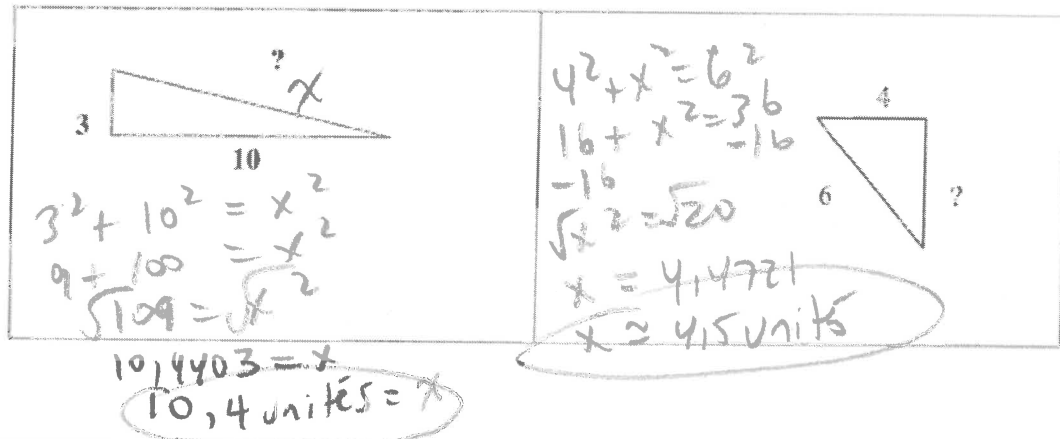 ?
x
3
10
3² + 10² = x²
9 + 100 = x²
√109 = √x²
10,4403 = x
10,4 unités = x
4² + x² = 6²
16 + x² = 36
-16 -16
√x² = √20
x = 4,4721
x ≃ 4,5 unités
4
6
?